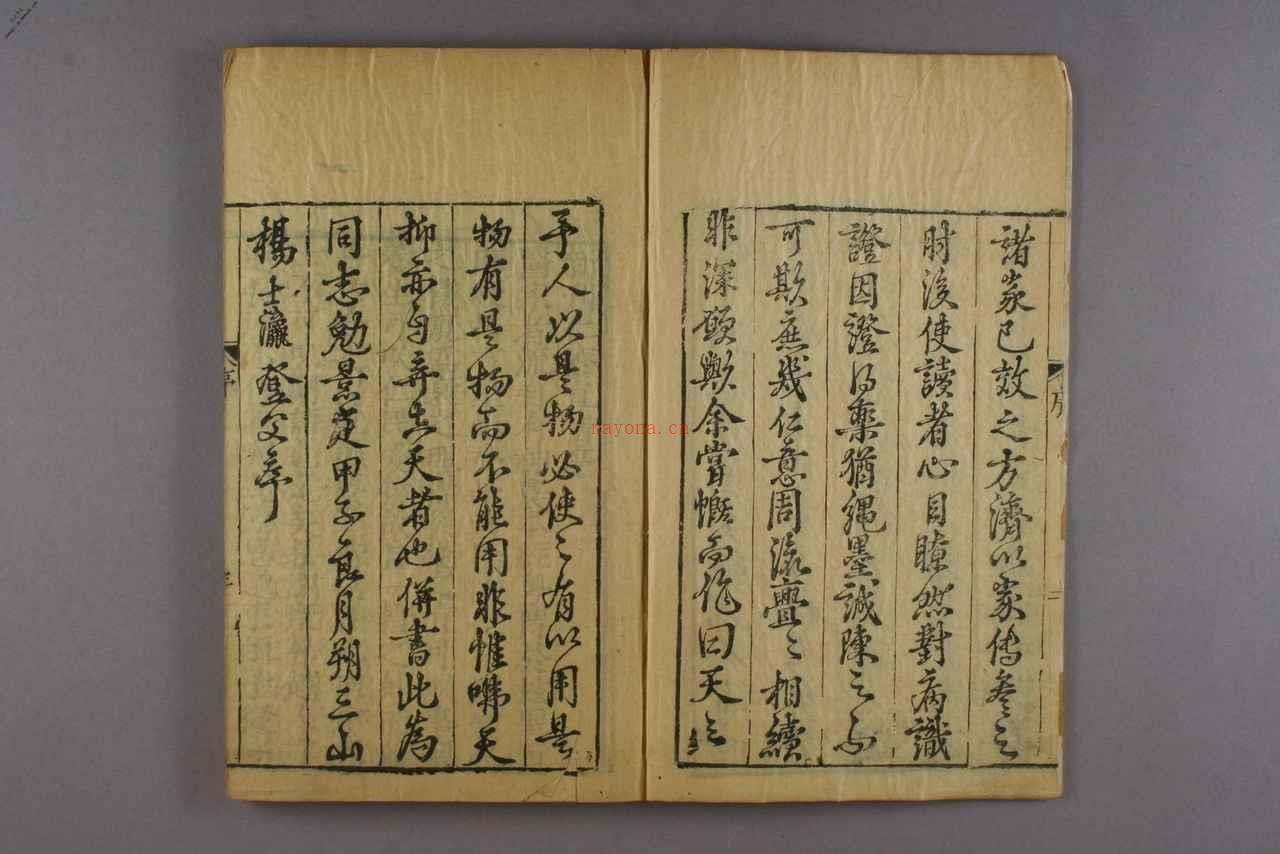 諸家已效之方濟以家傳參之
肘後使讀者心目瞭然對病識
證因證得藥猶繩墨誠陳之不
可欺庶幾仁意周流亹〻相續
非深願歟余嘗慨而作曰天之
予人以是物必使之有以用是
物有是物而不能用非惟咈天
抑亦自弃其天者也併書此為
同志勉景定甲子良月朔三山
楊士瀛登父序
序
二
序
三
nayona.cn